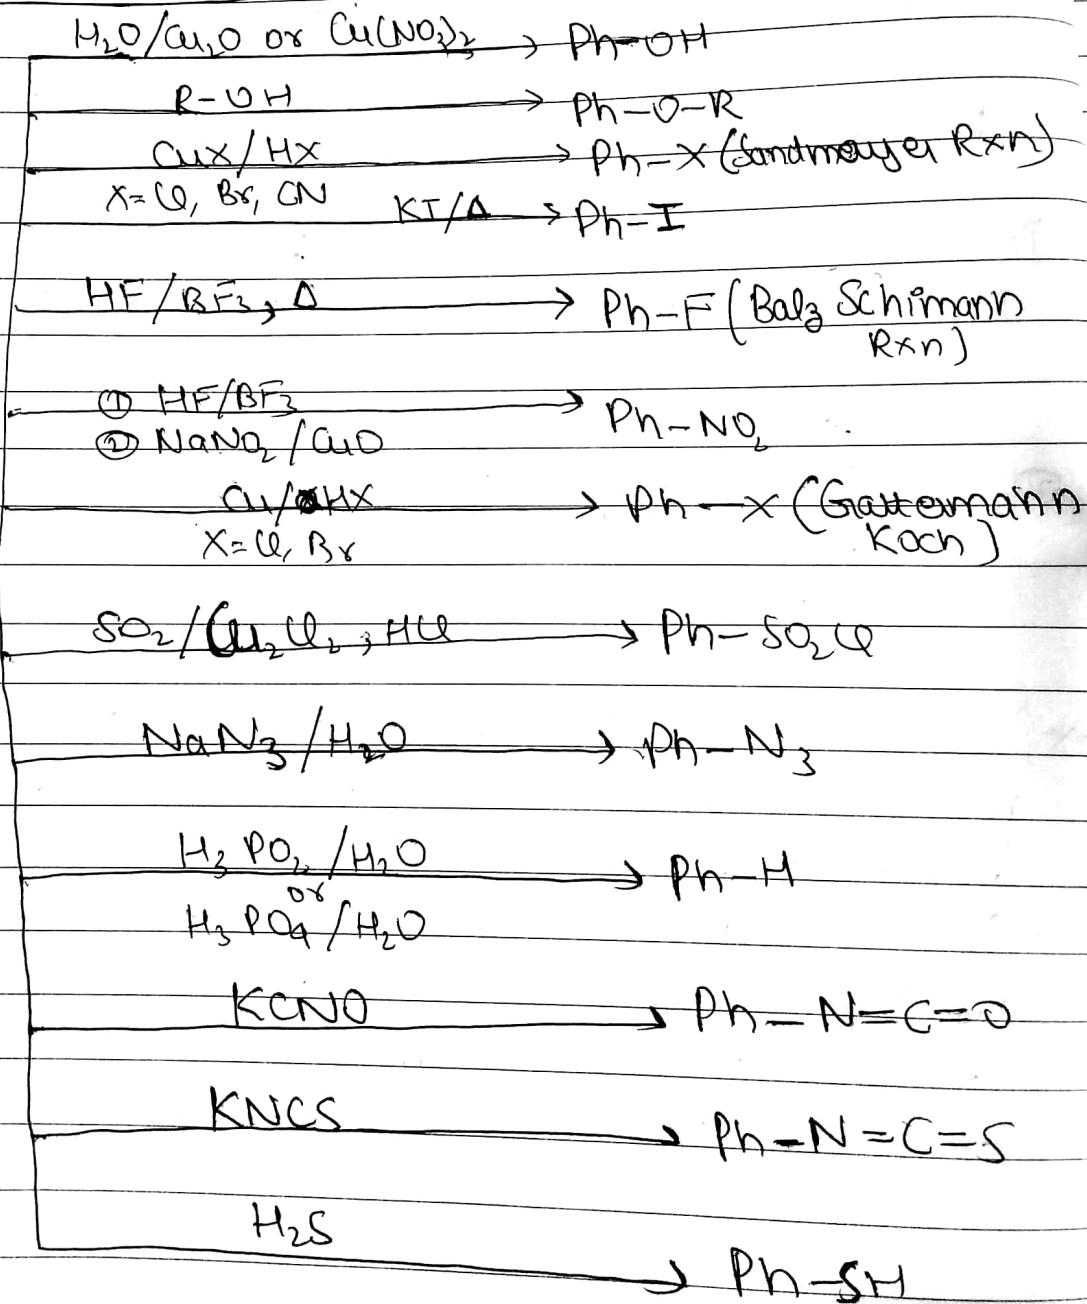 H₂O/Cu₂O or Cu(NO₃)₂ → Ph-OH
R-OH → Ph-O-R
CuX/HX → Ph-X (Sandmeyer Rxn)
X=Cl, Br, CN
KI/Δ → Ph-I
HF/BF₃, Δ → Ph-F (Balz Schimann
Rxn)
① HF/BF₃ → Ph-NO₂
② NaNO₂/CuO
Cu/HX → Ph-X (Gattermann
Koch)
X=Cl, Br
SO₂/Cu₂Cl₂, HCl → Ph-SO₂Cl
NaN₃/H₂O → Ph-N₃
H₃PO₂/H₂O → Ph-H
or
H₃PO₄/H₂O
KCNO → Ph-N=C=O
KNCS → Ph-N=C=S
H₂S → Ph-SH